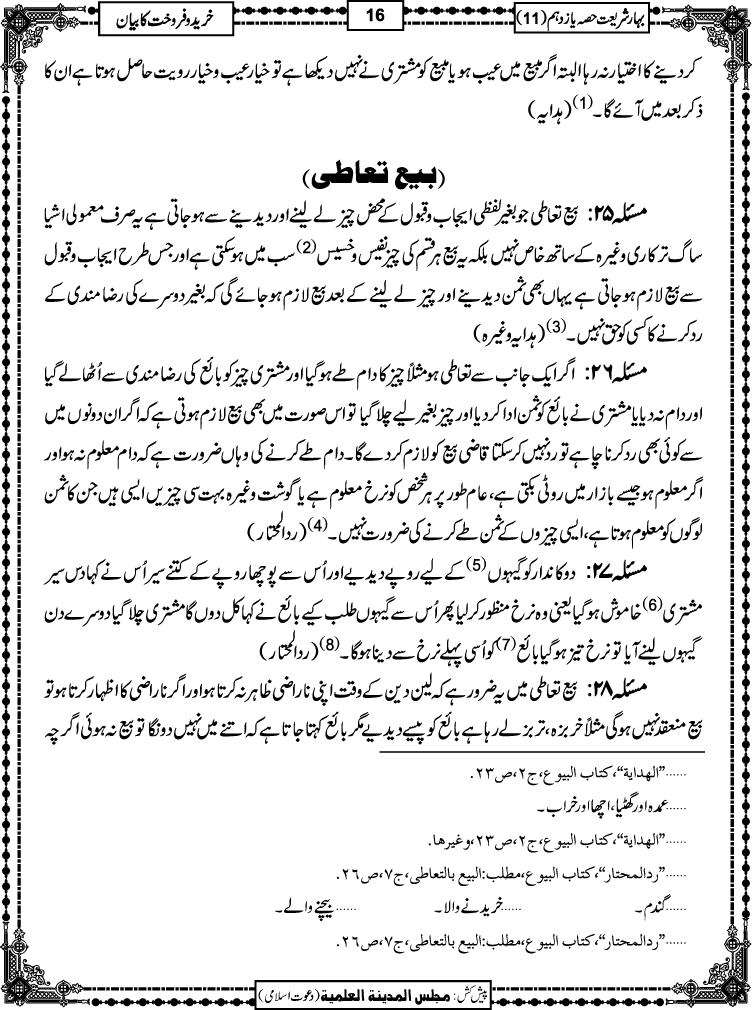 بہار شریعت حصہ یازدہم (11)
16
خرید و فروخت کا بیان
کر دینے کا اختیار نہ رہا البتہ اگر مبیع میں عیب ہو یا مبیع کو مشتری نے نہیں دیکھا ہے تو خیار عیب و خیار رویت حاصل ہوتا ہے ان کا
ذکر بعد میں آئے گا۔(1) (ہدایہ)
(بیع تعاطی)
مسئلہ ۲۵: بیع تعاطی جو بغیر لفظی ایجاب و قبول کے محض چیز لے لینے اور دیدینے سے ہو جاتی ہے یہ صرف معمولی اشیا
ساگ ترکاری وغیرہ کے ساتھ خاص نہیں بلکہ یہ بیع ہر قسم کی چیز نفیس و خسیس(2) سب میں ہو سکتی ہے اور جس طرح ایجاب و قبول
سے بیع لازم ہو جاتی ہے یہاں بھی ثمن دیدینے اور چیز لے لینے کے بعد بیع لازم ہو جائے گی کہ بغیر دوسرے کی رضا مندی کے
رد کرنے کا کسی کو حق نہیں۔(3) (ہدایہ وغیرہ)
مسئلہ ۲۶: اگر ایک جانب سے تعاطی ہو مثلاً چیز کا دام طے ہو گیا اور مشتری چیز کو بائع کی رضا مندی سے اُٹھا لے گیا
اور دام نہ دیا یا مشتری نے بائع کو ثمن ادا کر دیا اور چیز بغیر لیے چلا گیا تو اس صورت میں بھی بیع لازم ہوتی ہے کہ اگر ان دونوں میں
سے کوئی بھی رد کرنا چاہے تو رد نہیں کر سکتا قاضی بیع کو لازم کر دے گا۔ دام طے کرنے کی وہاں ضرورت ہے کہ دام معلوم نہ ہو اور
اگر معلوم ہو جیسے بازار میں روٹی بکتی ہے، عام طور پر ہر شخص کو نرخ معلوم ہے یا گوشت وغیرہ بہت سی چیزیں ایسی ہیں جن کا ثمن
لوگوں کو معلوم ہوتا ہے، ایسی چیزوں کے ثمن طے کرنے کی ضرورت نہیں۔(4) (ردالمحتار)
مسئلہ ۲۷: دوکاندار کو گیہوں(5) کے لیے روپے دیدیے اور اُس سے پوچھا روپے کے کتنے سیر اُس نے کہا دس سیر
مشتری(6) خاموش ہو گیا یعنی وہ نرخ منظور کر لیا پھر اُس سے گیہوں طلب کیے بائع نے کہا کل دوں گا مشتری چلا گیا دوسرے دن
گیہوں لینے آیا تو نرخ تیز ہو گیا بائع(7) کو اُسی پہلے نرخ سے دینا ہوگا۔(8) (ردالمحتار)
مسئلہ ۲۸: بیع تعاطی میں یہ ضرور ہے کہ لین دین کے وقت اپنی ناراضی ظاہر نہ کرتا ہو اور اگر ناراضی کا اظہار کرتا ہو تو
بیع منعقد نہیں ہوگی مثلاً خربزہ، تربز لے رہا ہے بائع کو پیسے دیدیے مگر بائع کہتا جاتا ہے کہ اتنے میں نہیں دونگا تو بیع نہ ہوئی اگرچہ
......”الهداية“،كتاب البيوع،ج۲،ص۲۳.
......عمدہ اور گھٹیا، اچھا اور خراب۔
......”الهداية“،كتاب البيوع،ج۲،ص۲۳،وغيرها.
......”ردالمحتار“،كتاب البيوع،مطلب:البيع بالتعاطى،ج۷،ص۲۶.
......گندم۔ ......خریدنے والا۔ ......بیچنے والے۔
......”ردالمحتار“،كتاب البيوع،مطلب:البيع بالتعاطى،ج۷،ص۲۶.
پیش کش: مجلس المدينة العلمية (دعوت اسلامی)